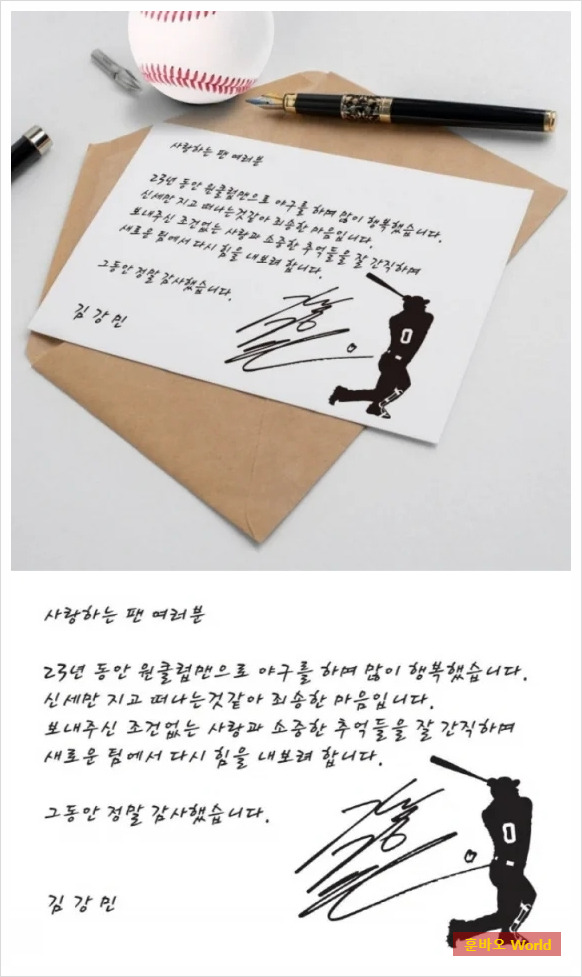 사랑하는 팬 여러분
23년 동안 원클럽맨으로 야구를 하며 많이 행복했습니다.
신세만 지고 떠나는것같아 죄송한 마음입니다.
보내주신 조건없는 사랑과 소중한 추억들을 잘 간직하며
새로운 팀에서 다시 힘을 내보려 합니다.
그동안 정말 감사했습니다.
김강민
0
사랑하는 팬 여러분
23년 동안 원클럽맨으로 야구를 하며 많이 행복했습니다.
신세만 지고 떠나는것같아 죄송한 마음입니다.
보내주신 조건없는 사랑과 소중한 추억들을 잘 간직하며
새로운 팀에서 다시 힘을 내보려 합니다.
그동안 정말 감사했습니다.
0
김강민
훈바오 World